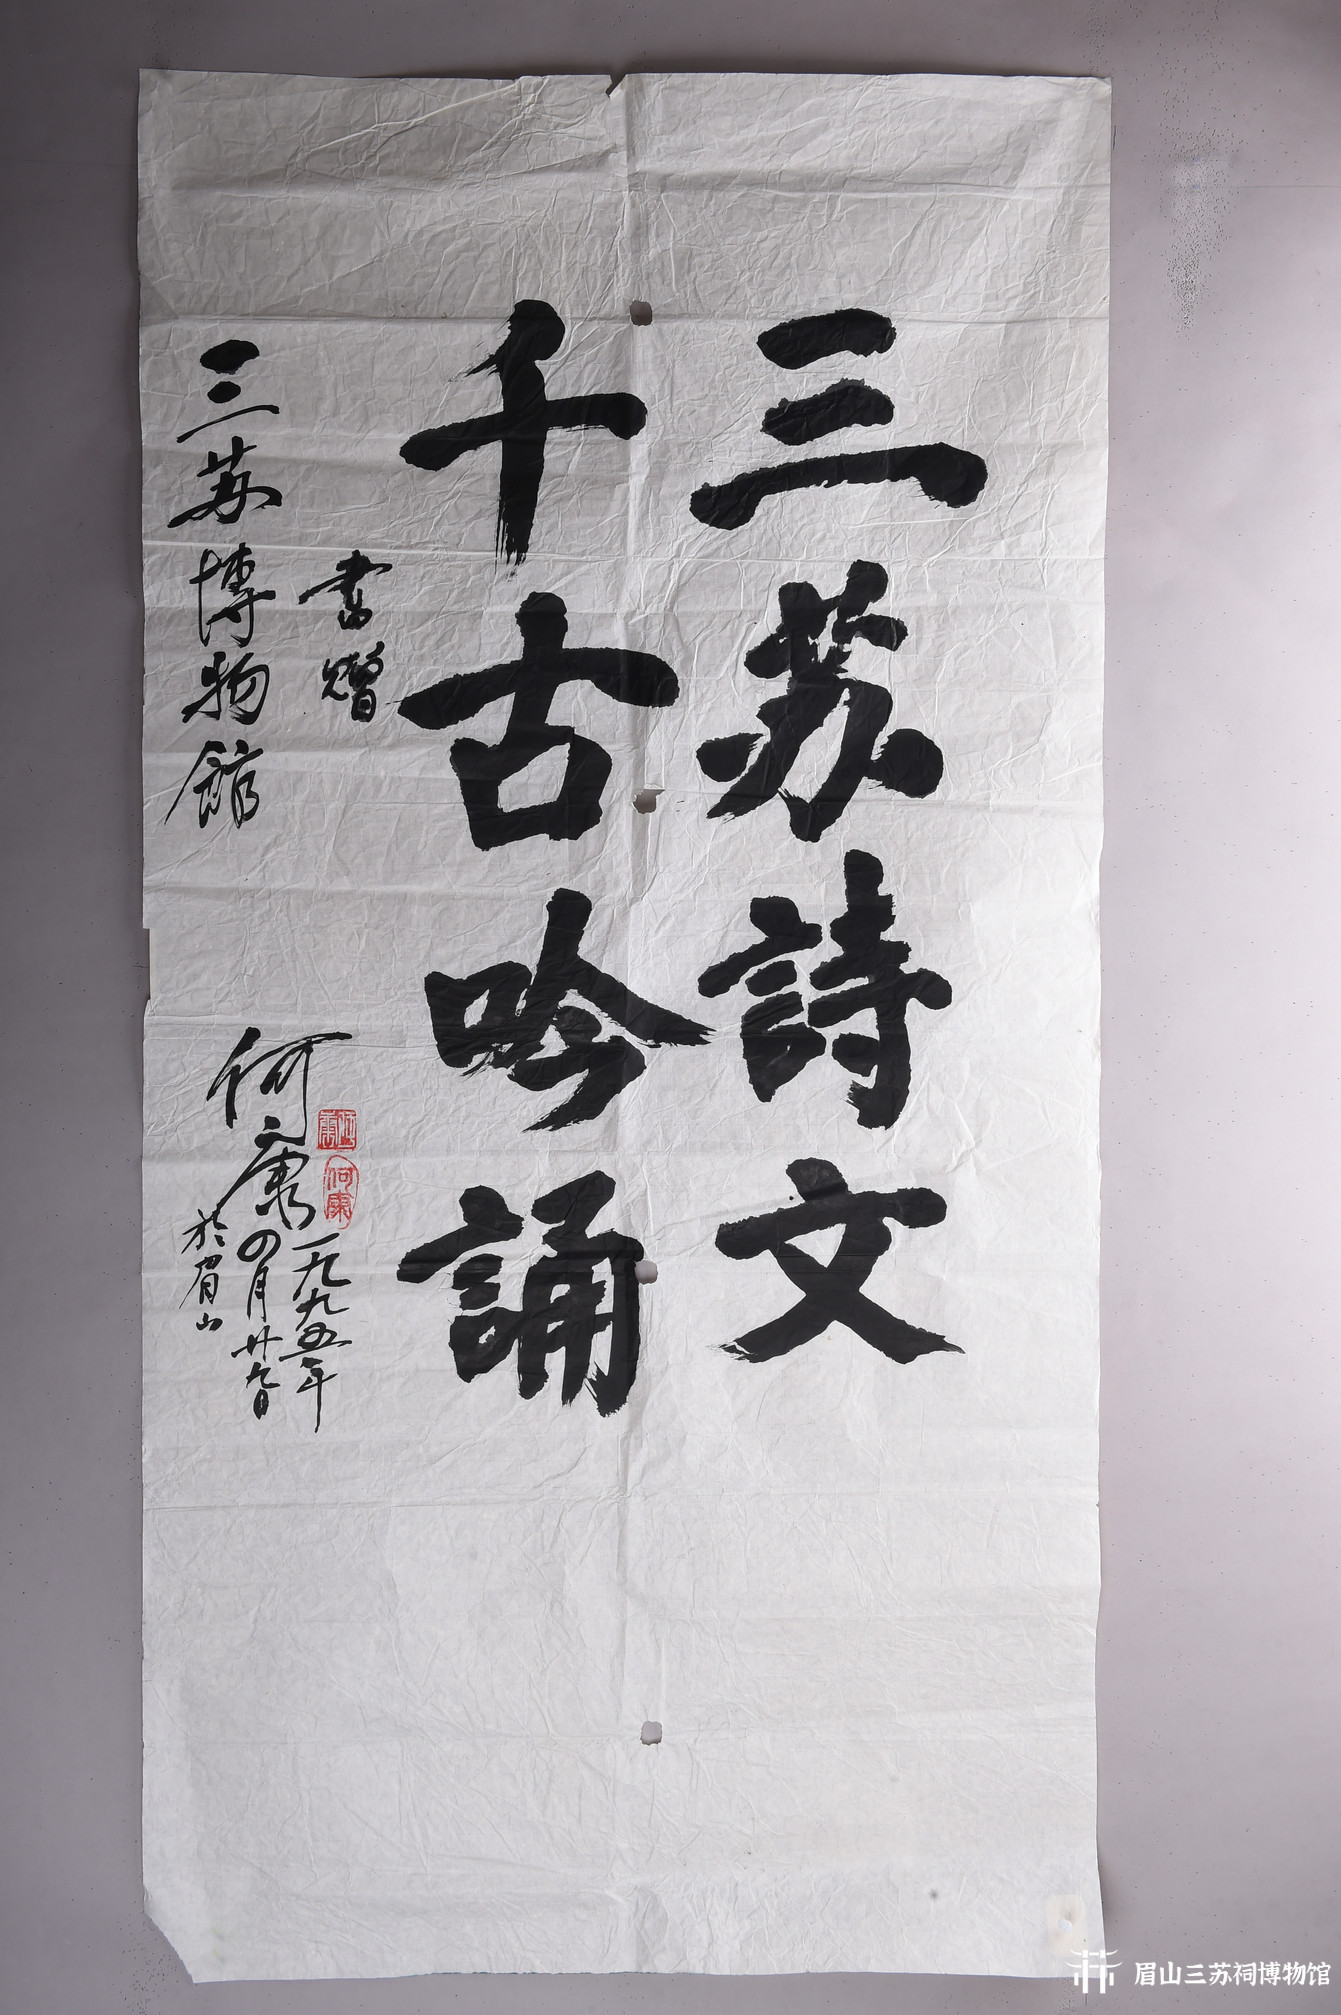 三苏詩文
千古吟誦
書贈
三苏博物館
何康
一九九五年
四月廿九日
於眉山
何康
眉山三苏祠博物馆